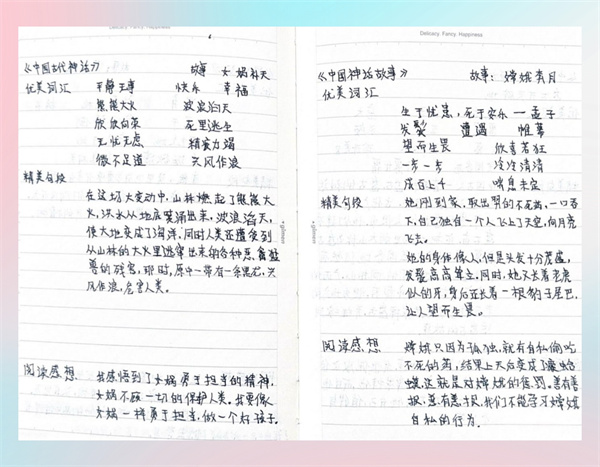 Delicacy. Fancy. Happiness
《中国古代神话》 故事 女娲补天
优美词汇 平静无事 快乐 幸福
熊熊大火 波浪滔天
欣欣向荣 死里逃生
无忧无虑 精疲力竭
微不足道 兴风作浪
精美句段
在这场大变动中,山林燃起了熊熊大
火,洪水从地底喷涌出来,波浪滔天,
使大地变成了海洋。同时人类还遭受到
从山林的大火里逃窜出来的各种恶禽猛
兽的残害,那时,原中一带有一条黑龙,兴
风作浪,危害人类。
阅读感想 我感悟到了女娲勇于担当的精神,
女娲不顾一切的保护人类。我要像
女娲一样勇于担当,做一个好孩子。
Delicacy. Fancy. Happiness
《中国神话故事》 故事:嫦娥奔月
优美词汇
生于忧患,死于安乐—孟子
发髮 遭遇 帷幕
望而生畏 欣喜若狂
一步一步 冷冷清清
成百上千 喘息未定
精美句段 她刚到家,取出羿的不死药,一口吞
下,自己独自一个人飞上了天空,向月亮
飞去。
她的身体像人,但是头发十分蓬盛,
发髮高高耸立,同时,她又长着老虎
似的牙,身后还长着一根豹子尾巴,
让人望而生畏。
阅读感想 嫦娥只因为孤独,就有自私偷吃
不死的药,结果上天后变成了癞蛤
蟆,这就是对嫦娥的惩罚。善有善
报,恶有恶报,我们不能学习嫦娥
自私的行为。